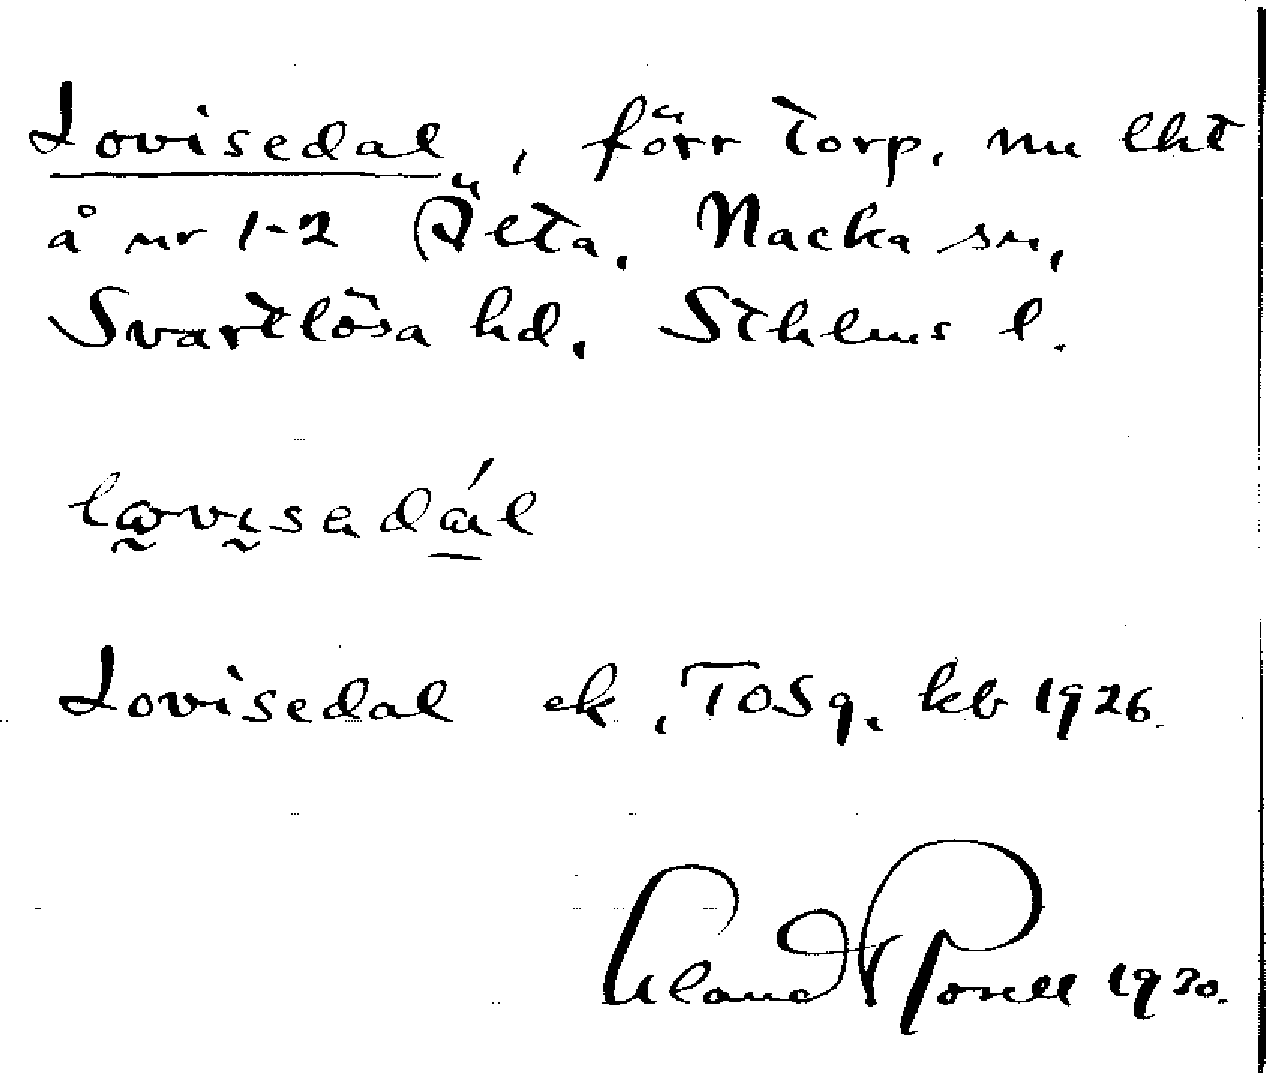 Lovisedal, förr torp, nu lht
å nr 1-2 Älta, Nacka sn,
Svartlösa hd, Sthlms l.
lovisadál
Lovisedal ek, TOSq, kb 1926.
1930.